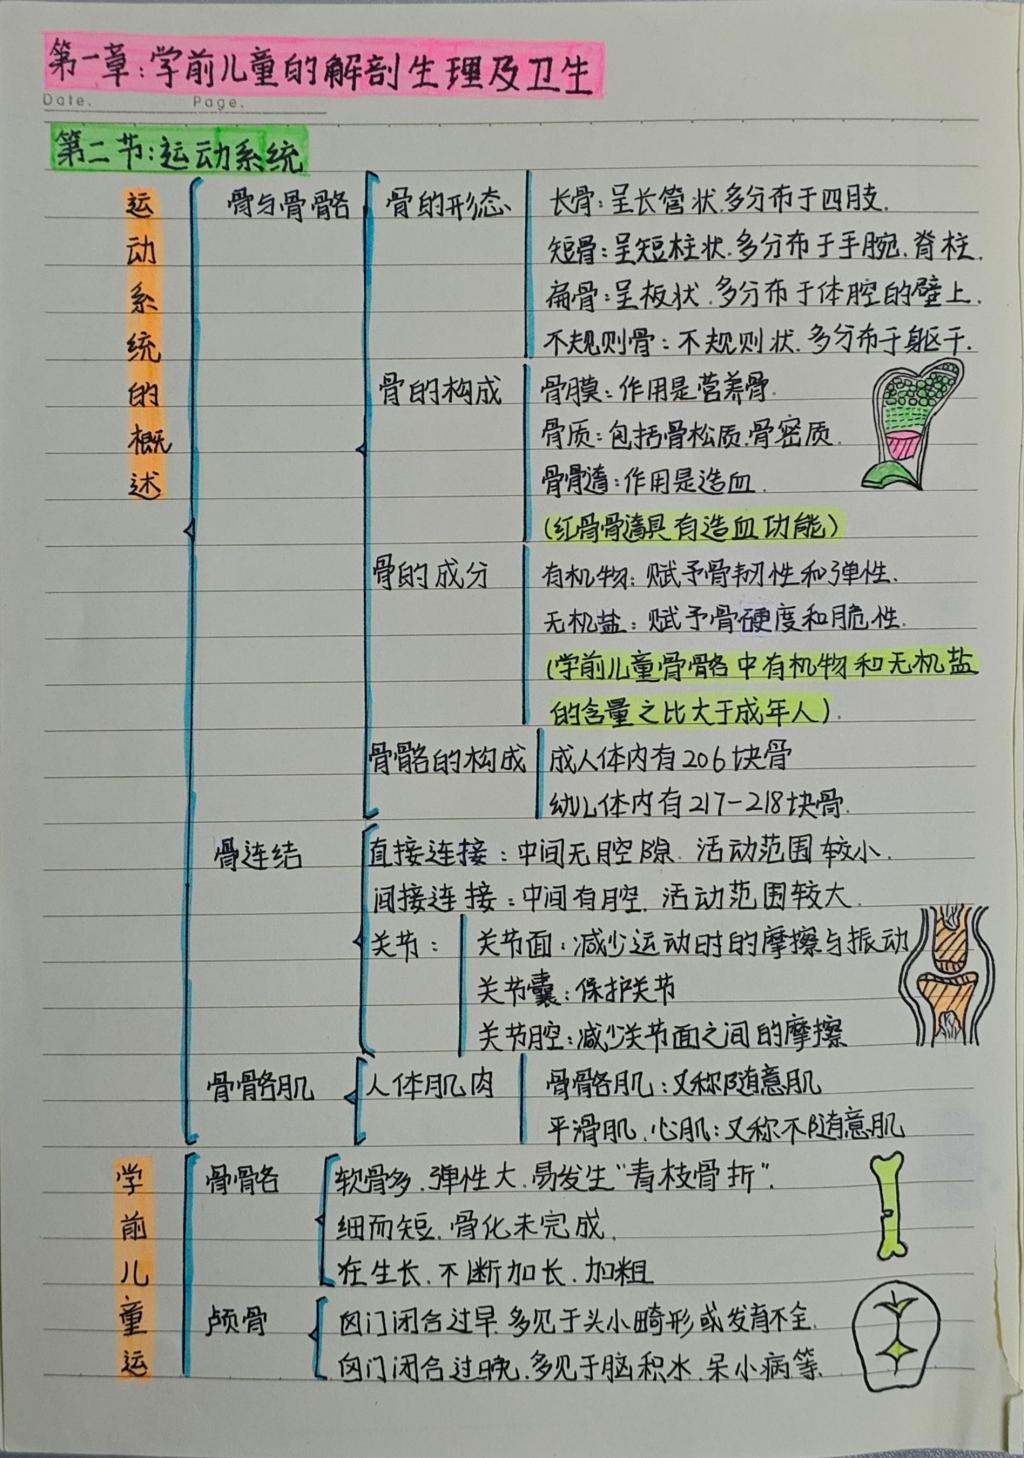 第一章:学前儿童的解剖生理及卫生
Date. Page.
第二节:运动系统
运动系统的概述
骨与骨骼
骨的形态
长骨:呈长管状.多分布于四肢.
短骨:呈短柱状.多分布于手腕.脊柱.
扁骨:呈板状.多分布于体腔的壁上.
不规则骨:不规则状.多分布于躯干.
骨的构成
骨膜:作用是营养骨.
骨质:包括骨松质.骨密质.
骨髓:作用是造血.
(红骨髓具有造血功能)
骨的成分
有机物:赋予骨韧性和弹性.
无机盐:赋予骨硬度和脆性.
(学前儿童骨骼中有机物和无机盐
的含量之比大于成年人).
骨骼的构成
成人体内有206块骨
幼儿体内有217-218块骨.
骨连结
直接连接:中间无腔隙.活动范围较小.
间接连接:中间有腔.活动范围较大.
关节:
关节面:减少运动时的摩擦与振动
关节囊:保护关节
关节腔:减少关节面之间的摩擦
骨骼肌
人体肌肉
骨骼肌:又称随意肌
平滑肌.心肌:又称不随意肌
学前儿童运
骨骼
软骨多.弹性大.易发生"青枝骨折".
细而短.骨化未完成.
在生长.不断加长.加粗
颅骨
囟门闭合过早.多见于头小畸形或发育不全.
囟门闭合过晚.多见于脑积水.呆小病等.